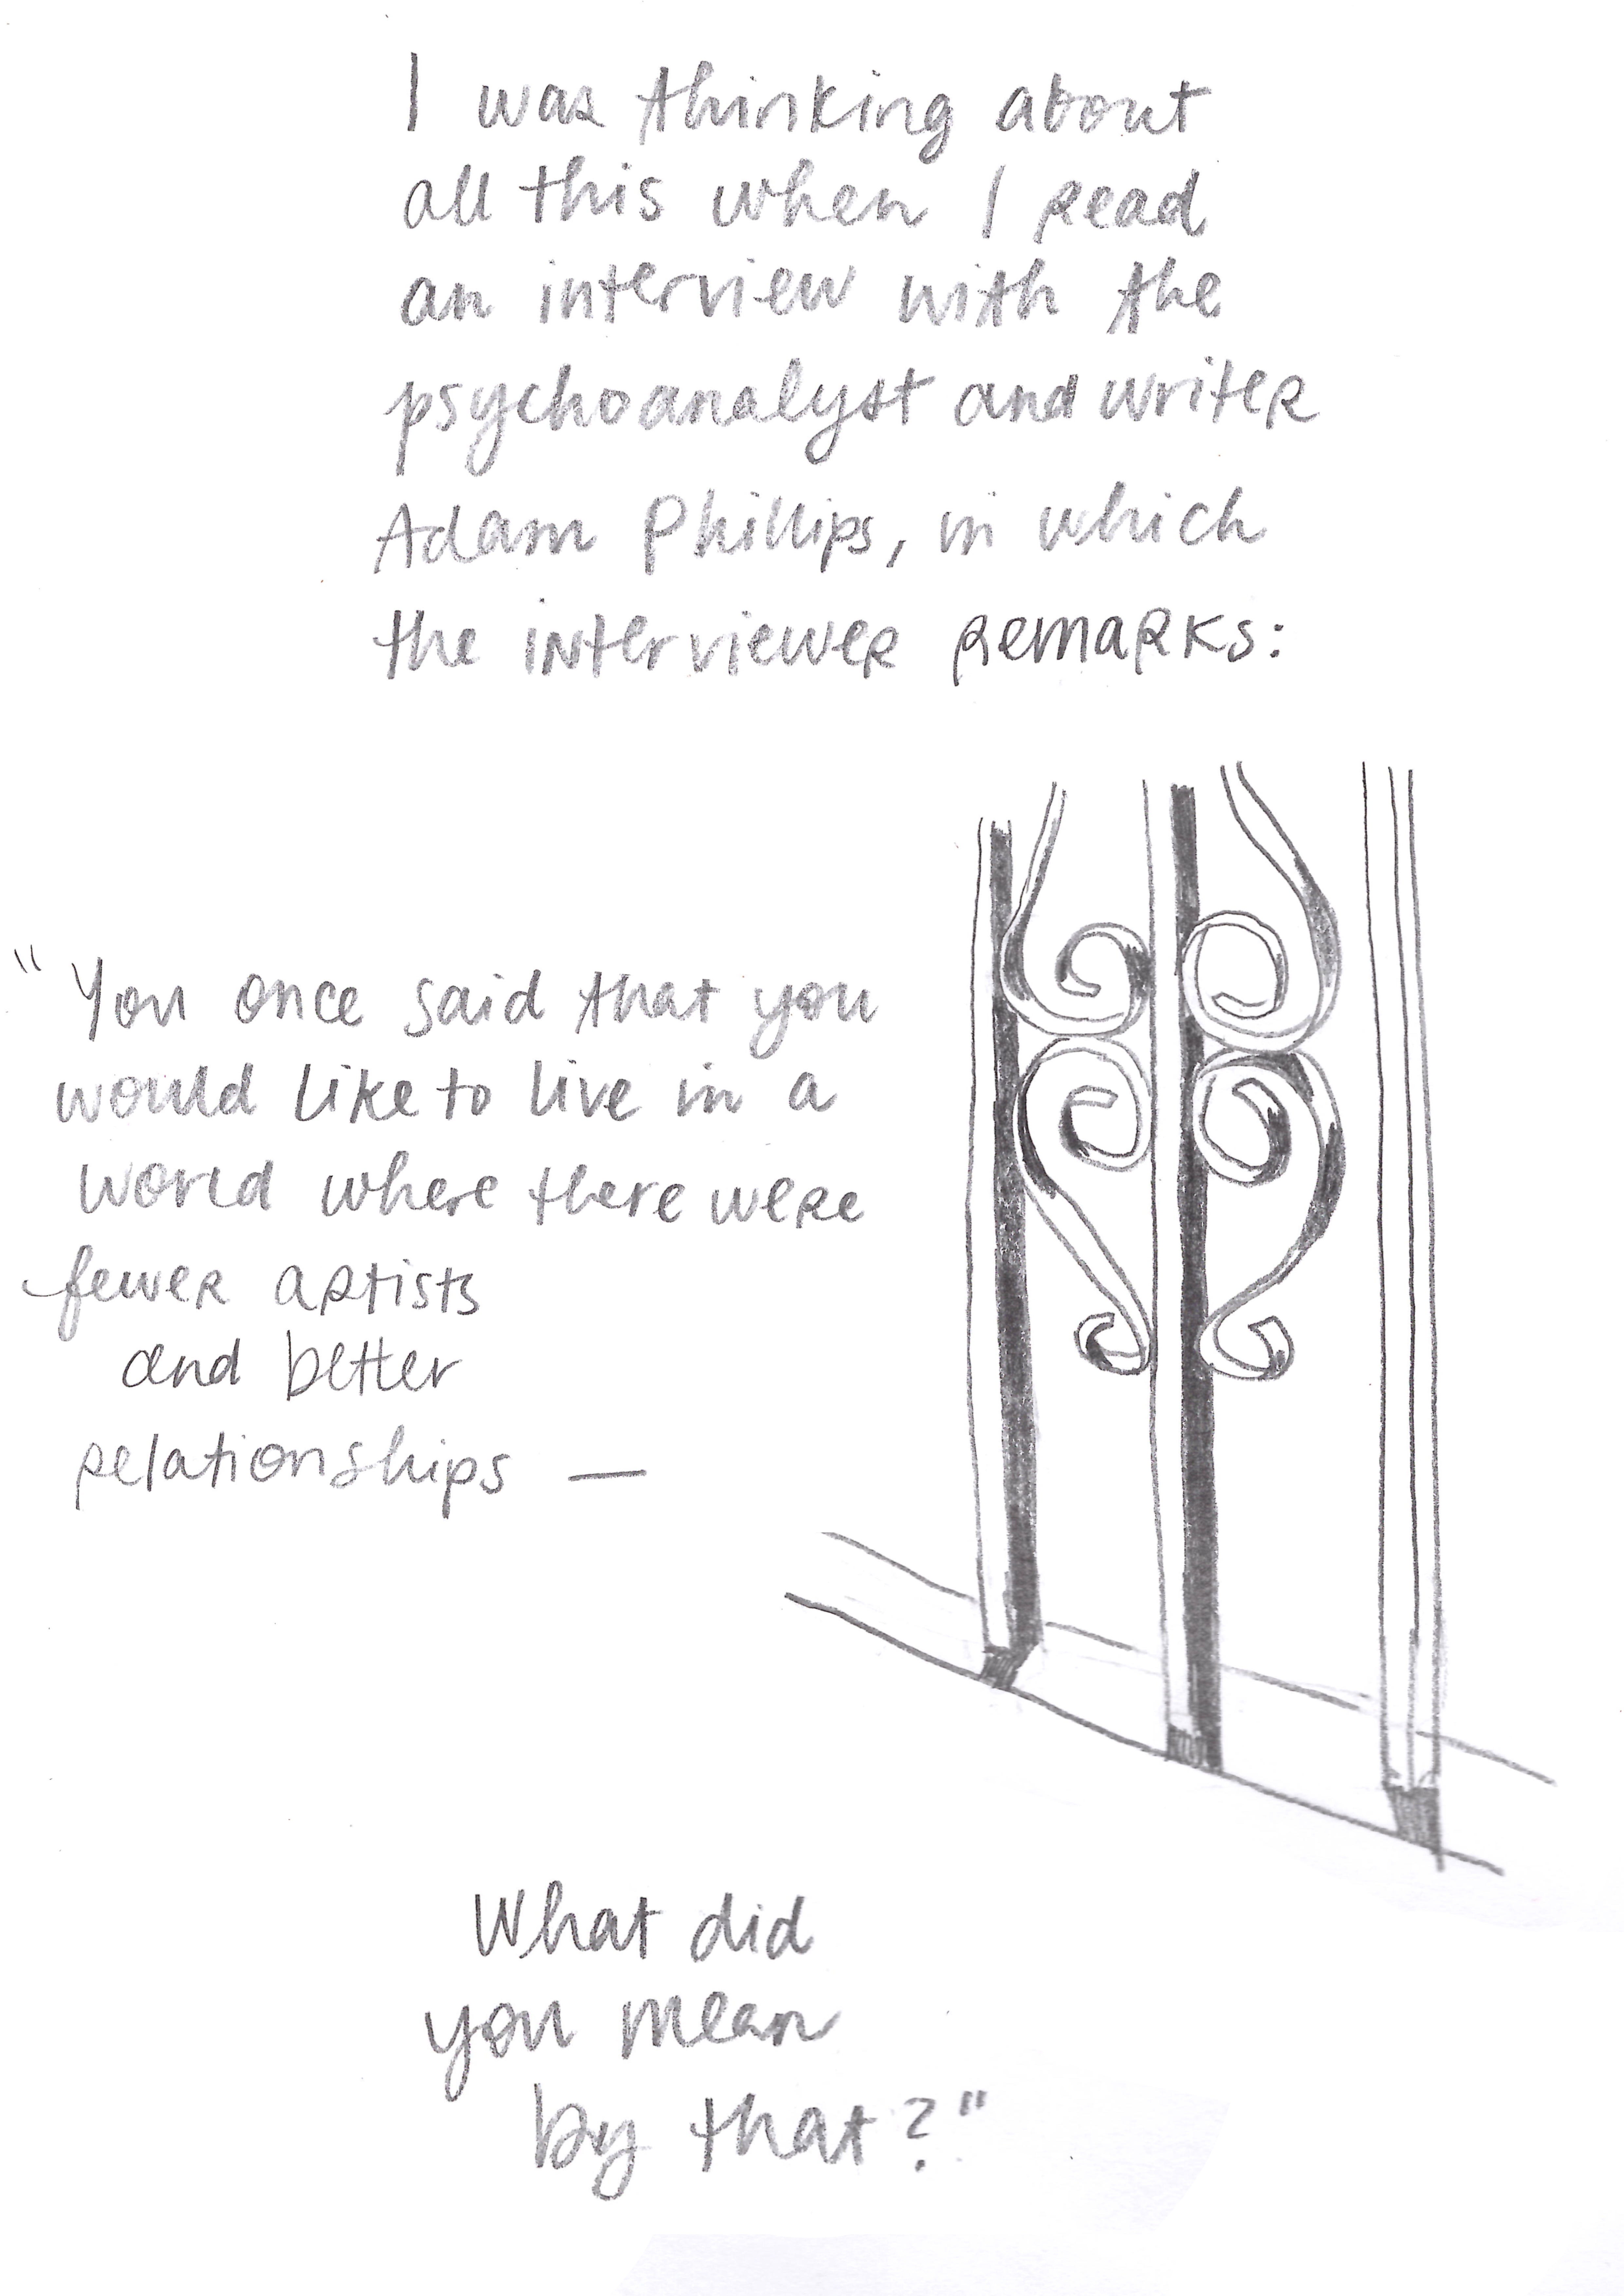 I was thinking about
all this when I read
an interview with the
psychoanalyst and writer
Adam Phillips, in which
the interviewer remarks:
"You once said that you
would like to live in a
world where there were
fewer artists
and better
relationships —
What did
you mean
by that?"